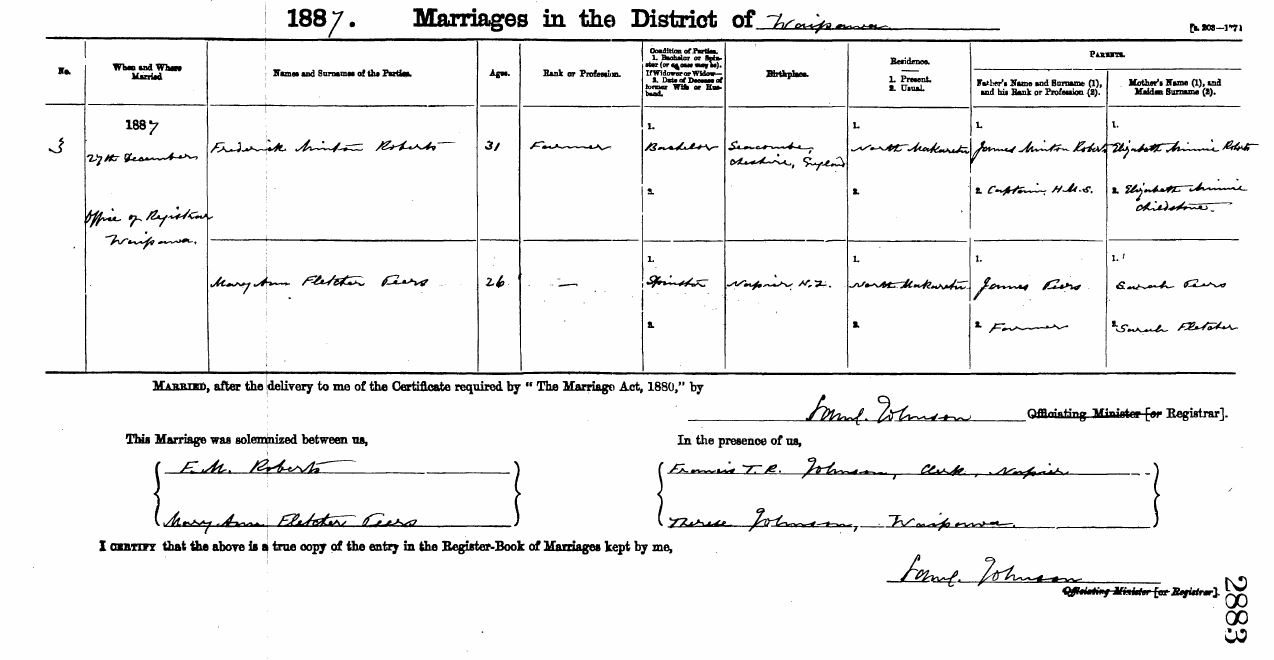 1887. Marriages in the District of Waipawa
No.
When and Where Married
Names and Surnames of the Parties.
Ages.
Rank or Profession.
Condition of Parties.
1. Bachelor or Spin-
ster (or as case may be).
If Widower or Widow—
2. Date of Decease of
former Wife or Hus-
band.
Birthplace.
Residence.
1. Present.
2. Usual.
PARENTS.
Father's Name and Surname (1),
and his Rank or Profession (2).
Mother's Name (1), and
Maiden Surname (2).
3
1887
27th December
Office of Registrar
Waipawa.
Frederick Minton Roberts
31
Farmer
1.
Bachelor
2.
Seacombe,
Cheshire, England
1.
North Makaretu
2.
1.
James Minton Roberts
2. Captain, H.M.S.
1.
Elizabeth Minnie Roberts
2. Elizabeth Minnie
Mary Ann Fletcher Peers
26
—
1.
Spinster
2.
Napier N.Z.
1.
North Makaretu
2.
1.
James Peers
2. Farmer
1.
Sarah Peers
2. Sarah Fletcher
MARRIED, after the delivery to me of the Certificate required by "The Marriage Act, 1880," by
Saml. Johnson Officiating Minister [or Registrar].
This Marriage was solemnized between us,
F. M. Roberts
Mary Ann Fletcher Peers
In the presence of us,
Francis T. R. Johnson, Clerk, Napier
Therese Johnson, Waipawa.
I CERTIFY that the above is a true copy of the entry in the Register-Book of Marriages kept by me,
Saml. Johnson
Officiating Minister [or Registrar].
2883